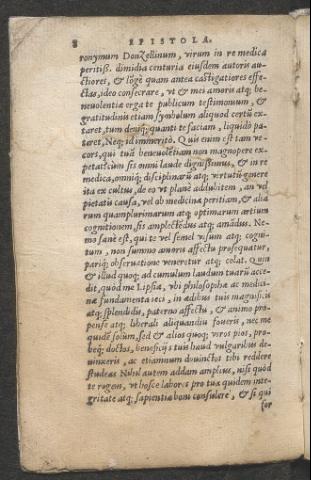 8 EPISTOLA.
ronymum Donzellinum, virum in re medica
peritiß. dimidia centuria eiusdem autoris au-
ctiores, & lõgè quam antea castigatiores effe-
ctas, ideo consecrare, vt & mei amoris atq; be-
neuolentiæ erga te publicum testimonium, &
gratitudinis etiam symbolum aliquod certũ ex-
taret, tum deniq; quanti te faciam, liquidò pa-
teret, Neq; id immeritò. Quis enim est tam ve-
cors, qui tuã beneuolentiam non magnopere ex-
petat: cùm sis omni laude dignissimus, & in re
medica, omniq; disciplinarũ atq; virtutũ genere
ita ex cultus, de eo vt planè addubitem, an vel
pietatis causa, vel ob medicinæ peritiam, & alia
rum quamplurimarum atq; optimarum artium
cognitionem, sis amplectẽdus atq; amãdus. Ne-
mo sanè est, qui te vel semel visum atq; cogni-
tum, non summo amoris affectu prosequatur,
pariq; obseruatione veneretur atq; colat. Quin
& illud quoq; ad cumulum laudum tuarũ acce-
dit, quòd me Lipsiæ, vbi philosophiæ ac medici-
næ fundamenta ieci, in ædibus tuis magnificis
atq; splendidis, paterno affectu, & animo pro-
penso atq; liberali aliquandiu foueris, nec me
quidẽ solùm, sed & alios quoq; viros pios, pro-
beq; doctos, beneficijs tuis haud vulgaribus de-
uinxeris, ac etiamnum deuinctos tibi reddere
studeas Nihil autem addam amplius, nisi quòd
te rogem, vt hosce labores pro tua quidem inte-
gritate atq; sapientia boni consulere, & si qui
for